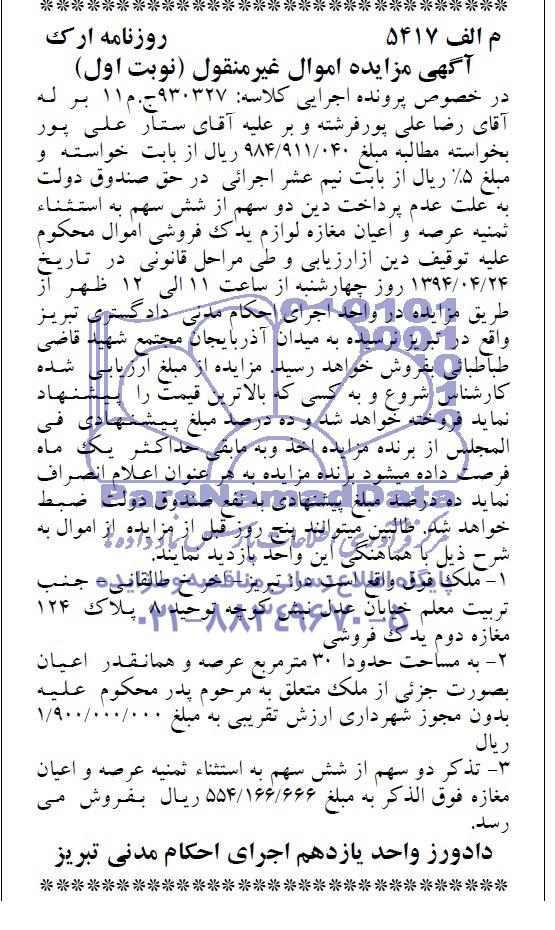 م الف ۵۴۱۷ روزنامه ارک
آگهی مزایده اموال غیرمنقول (نوبت اول)
در خصوص پرونده اجرایی کلاسه: ۹۳۰۳۲۷ج.م۱۱ بر له
آقای رضا علی پورفرشته و بر علیه آقای ستار علی پور
بخواسته مطالبه مبلغ ۹۸۴/۹۱۱/۰۴۰ ریال از بابت خواسته و
مبلغ ۵٪ ریال از بابت نیم عشر اجرائی در حق صندوق دولت
به علت عدم پرداخت دین دو سهم از شش سهم به استثناء
ثمنیه عرصه و اعیان مغازه لوازم یدک فروشی اموال محکوم
علیه توقیف دین ازارزیابی و طی مراحل قانونی در تاریخ
۱۳۹۴/۰۴/۲۴ روز چهارشنبه از ساعت ۱۱ الی ۱۲ ظهر از
طریق مزایده در واحد اجرای احکام مدنی دادگستری تبریز
واقع در تبریز نرسیده به میدان آذربایجان مجتمع شهید قاضی
طباطبائی بفروش خواهد رسید. مزایده از مبلغ ارزیابی شده
کارشناس شروع و به کسی که بالاترین قیمت را پیشنهاد
نماید فروخته خواهد شد و ده درصد مبلغ پیشنهادی فی
المجلس از برنده مزایده اخذ وبه مابقی حداکثر یک ماه
فرصت داده میشود برنده مزایده به هر عنوان اعلام انصراف
نماید ده درصد مبلغ پیشنهادی به نفع صندوق دولت ضبط
خواهد شد. طالبین میتوانند پنج روز قبل از مزایده از اموال به
شرح ذیل با هماهنگی این واحد بازدید نمایند.
۱- ملک فوق واقع است در: تبریز- آخر خ طالقانی- جنب
تربیت معلم خیابان عدل نبش کوچه توحید ۸ پلاک ۱۲۴
مغازه دوم یدک فروشی
۲- به مساحت حدودا ۳۰ مترمربع عرصه و همانقدر اعیان
بصورت جزئی از ملک متعلق به مرحوم پدر محکوم علیه
بدون مجوز شهرداری ارزش تقریبی به مبلغ ۱/۹۰۰/۰۰۰/۰۰۰
ریال
۳- تذکر دو سهم از شش سهم به استثناء ثمنیه عرصه و اعیان
مغازه فوق الذکر به مبلغ ۵۵۴/۱۶۶/۶۶۶ ریال بفروش می
رسد.
دادورز واحد یازدهم اجرای احکام مدنی تبریز
ParsNamadData
مرکز فرآوری اطلاعات پارس نماد داده ها
پایگاه اطلاع رسانی مناقصه و مزایده
۰۲۱-۸۸۳۴۹۶۷۰-۵